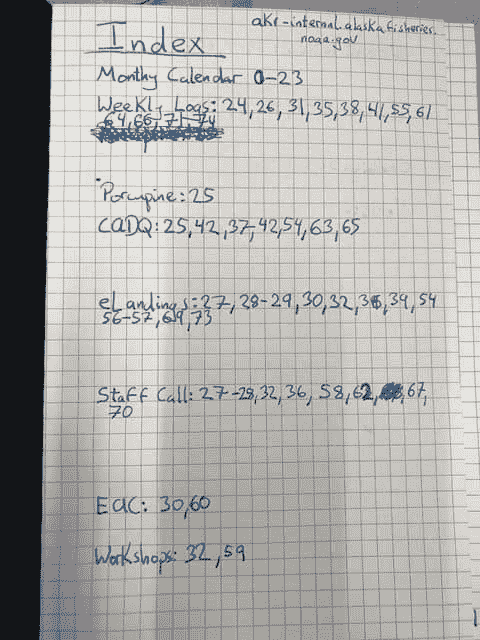 akr-internal.alaskafisheries.
noaa.gov
Index
Monthy Calendar 0-23
Weekly Logs: 24, 26, 31, 35, 38, 41, 55, 61
64, 66, 71, 74
Porcupine: 25
CADQ: 25, 42, 37, 42, 54, 63, 65
eLandings: 27, 28-29, 30, 32, 36, 39, 54
56-57, 69, 73
Staff Call: 27-28, 32, 36, 58, 62, 67,
70
EAC: 30, 60
Workshops: 32, 59
1